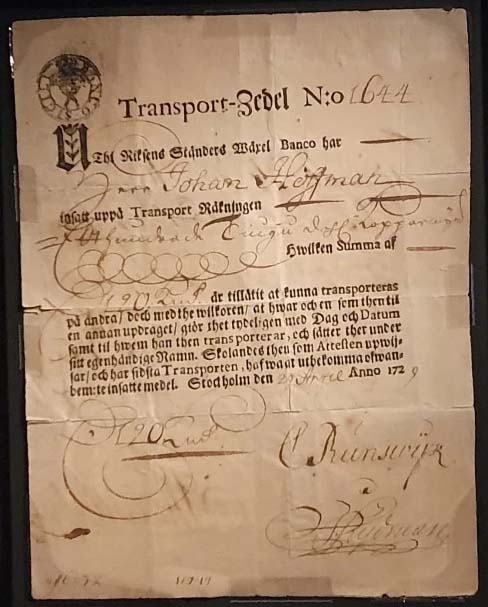 Transport-Zedel N:o 1644
Uthi Riksens Ständers Wäxel Banco har
Herr Johan Hoffman
insatt uppå Transport Räkningen
hundrade Tiugu
Hwilken Summa af
120 är tillåtit at kunna transporteras
på andra/ doch med the wilkoren/ at hwar och en som them til
en annan updraget/ giör thet tydeligen med Dag och Datum
samt til hwem han then transporterar, och sätter ther under
sitt egenhändige Namn. Skolandes then som Attesten upwij-
sar/ och har sidsta Transporten, hafwa at utbekomma ofwan-
bem:te insatte medel. Stockholm den 29 April Anno 1729
120
C Runswijk